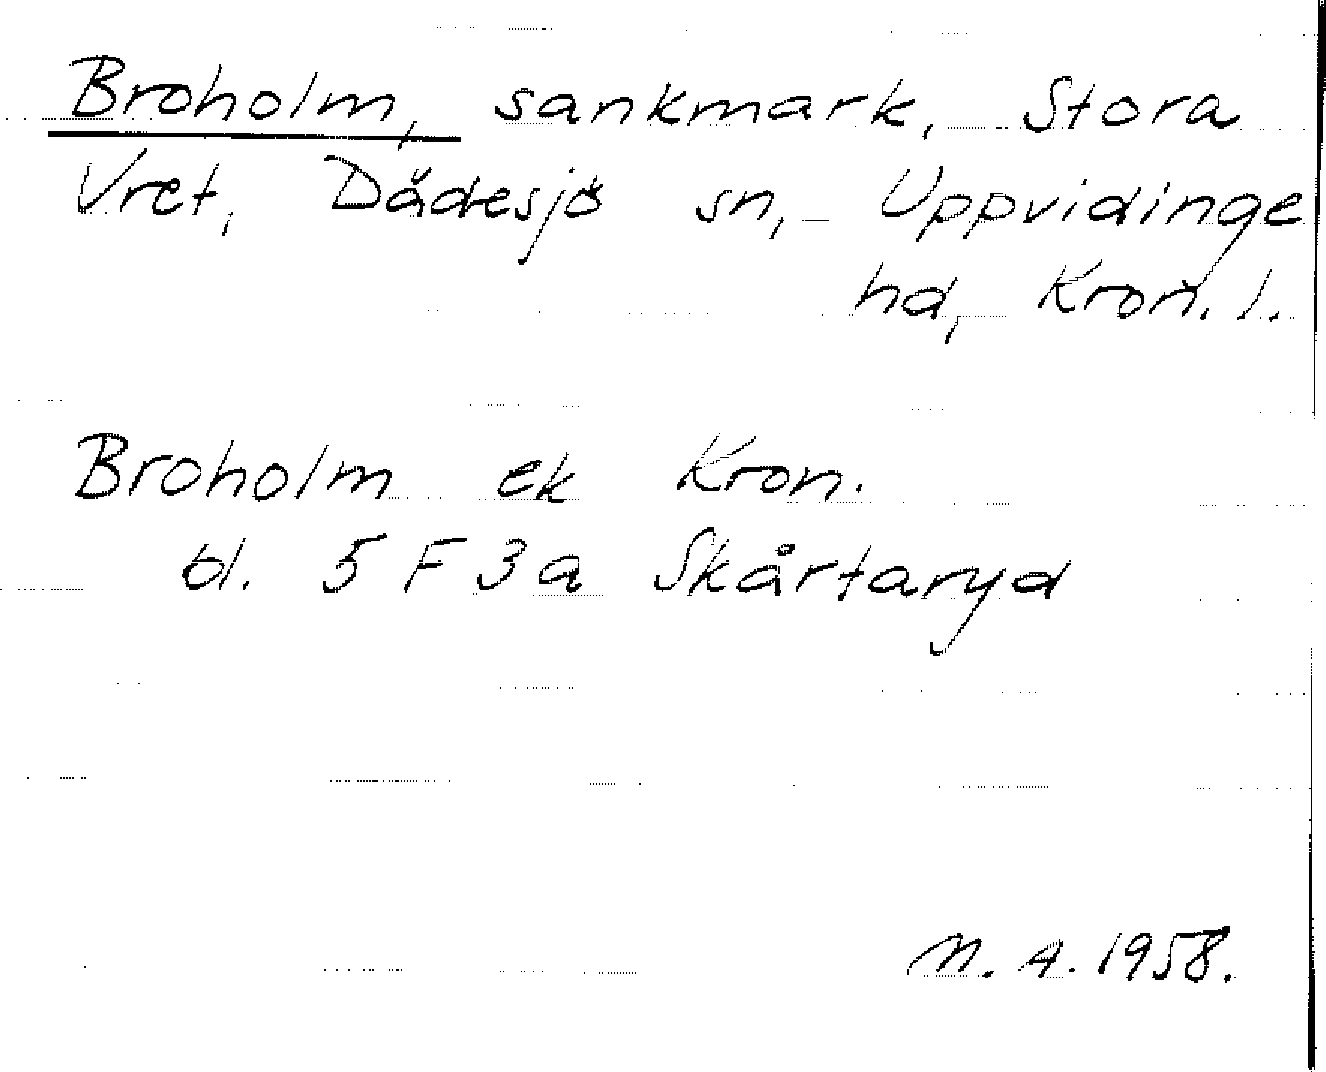 Broholm, sankmark, Stora
Vret, Dädesjö sn, Uppvidinge
hd, Kron. l.
Broholm ek Kron.
bl. 5 F 3 a Skårtaryd
M. A. 1958.